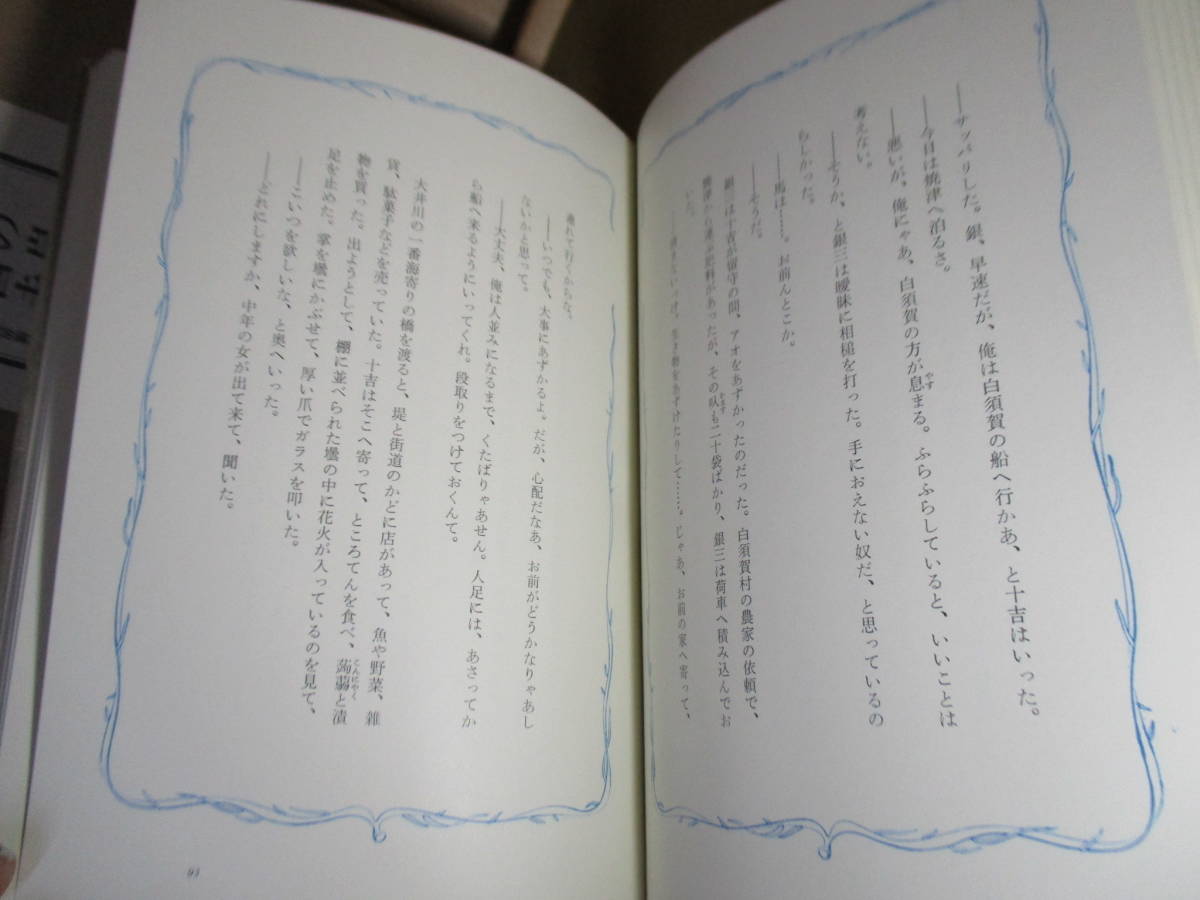 ――サッパリした。銀、早速だが、俺は白須賀の船へ行かあ、と十吉はいった。
――今日は焼津へ泊るさ。
――悪いが、俺にゃあ、白須賀の方が息まる。ふらふらしていると、いいことは
やす
考えない。
――そうか、と銀三は曖昧に相槌を打った。手におえない奴だ、と思っているの
らしかった。
――馬は……。お前んとこか。
――そうだ。
銀三は十吉が留守の間、アオをあずかったのだった。白須賀村の農家の依頼で、
焼津から運ぶ肥料があったが、その叺も二十袋ばかり、銀三は荷車へ積み込んでお
かます
いた。
生き物をあずけたりして……。じゃあ、お前の家へ寄って、
連れて行くからな。
――いつでも、大事にあずかるよ。だが、心配だなあ、お前がどうかなりゃあし
ないかと思って。
――大丈夫、俺は人並みになるまで、くたばりゃあせん。人足には、あさってか
ら船へ来るようにいってくれ。段取りをつけておくんて。
大井川の一番海寄りの橋を渡ると、堤と街道のかどに店があって、魚や野菜、雑
貨、駄菓子などを売っていた。十吉はそこへ寄って、ところてんを食べ、蒟蒻と漬
こんにゃく
物を買った。出ようとして、棚に並べられた壜の中に花火が入っているのを見て、
足を止めた。掌を壜にかぶせて、厚い爪でガラスを叩いた。
――こいつを欲しいな、と奥へいった。
――どれにしますか、中年の女が出て来て、聞いた。